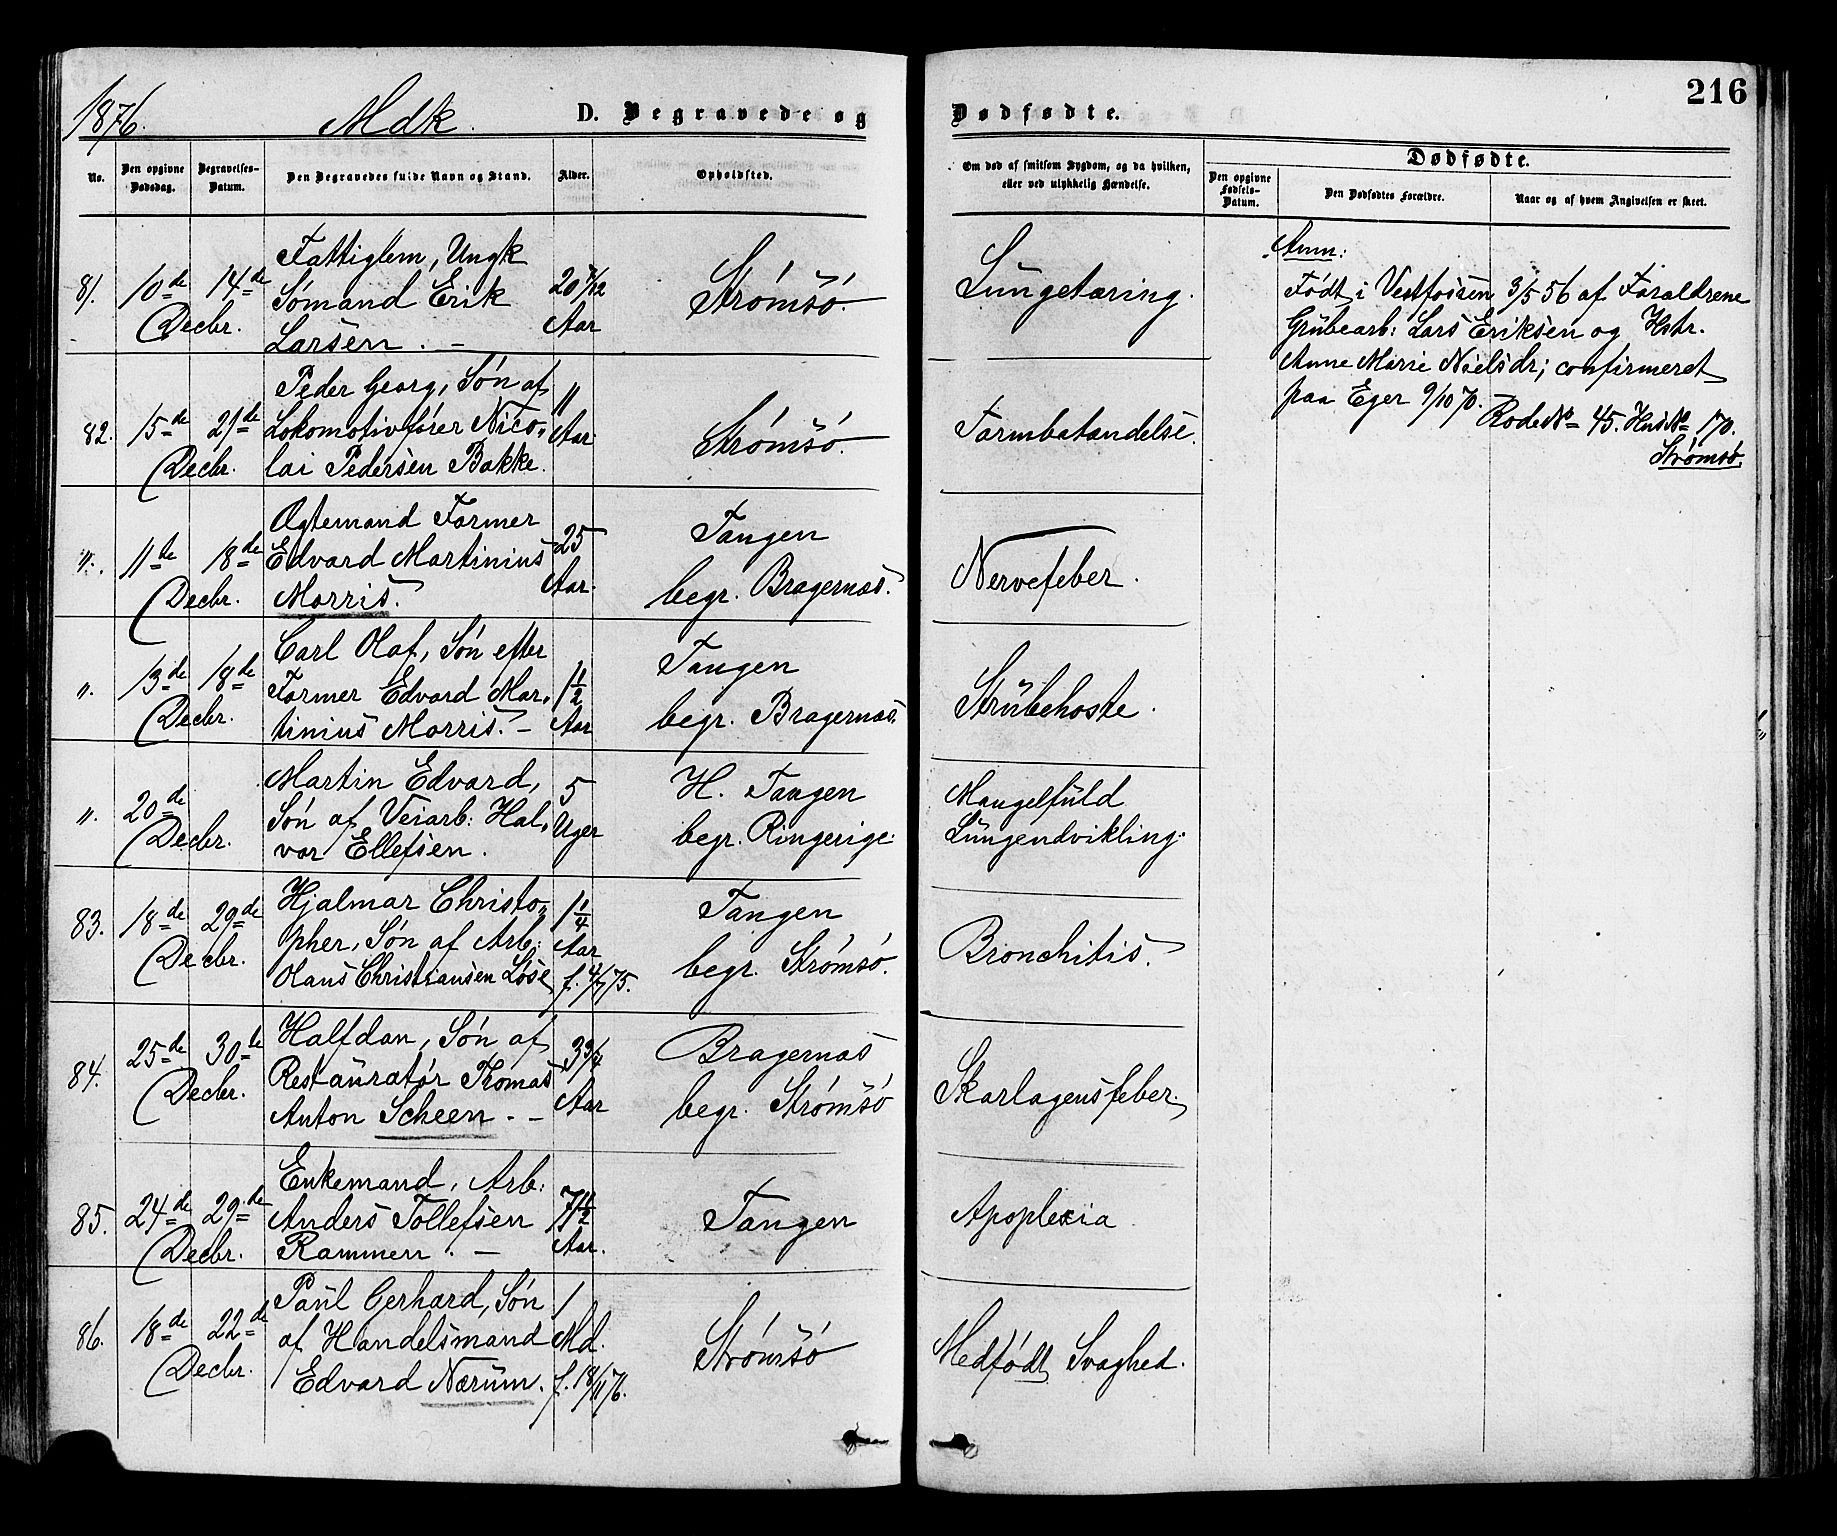 216
1876.
Mdk.
D. Begravede og
Dødfødte.
No.
Den opgivne Dødsdag.
Begravelses-Datum.
Den Begravedes fulde Navn og Stand.
Alder.
Opholdsted.
Om død af smitsom Sygdom, og da hvilken,
eller ved ulykkelig Hændelse.
Dødfødte.
Den opgivne Fødsels-Datum.
Den Dødfødtes Forældre.
Naar og af hvem Angivelsen er skeet.
81. 10de 14de Decbr.
Fattiglem, Ungk
Sømand Erik
Larsen. —
20 7/12
Aar
Strømsø.
Lungetæring.
Anm:
Født i Vestfossen 3/5 56 af Forældrene
Grubearb: Lars Eriksen og Hstr.
Anne Marie Nielsdr; confirmeret
paa Eger 9/10 70.
Rode № 45. Hus № 170.
Strømsø.
82. 15de 21de Decbr.
Peder Georg, Søn af
Lokomotivfører Nico-
lai Pedersen Bakke.
11
Aar
Strømsø.
Tarmbetændelse.
". 11te 18de Decbr.
Ægtemand Farmer
Edvard Martinius
Morris.
25
Aar.
Tangen
begr. Bragernæs.
Nervefeber.
". 13de 18de Decbr.
Carl Olaf, Søn efter
Farmer Edvard Mar-
tinius Morris. —
1 1/2
Aar
Tangen
begr. Bragernæs.
Strubehoste.
". 20de Decbr.
Martin Edvard,
Søn af Veiarb: Hal-
vor Ellefsen.
5
Uger
H. Tangen
begr. Ringerige.
Mangelfuld
Lungeudvikling.
83. 18de 29de Decbr.
Hjalmar Christo-
pher, Søn af Arb:
Olaus Christiansen Løse
1 1/4
Aar
Tangen
begr. Strømsø.
Bronchitis.
84. 25de 30te Decbr.
Halfdan, Søn af
Restauratør Thomas
Anton Scheen. —
3 3/4
Aar
Bragernæs
begr. Strømsø
Skarlagensfeber.
85. 24de 29de Decbr.
Enkemand, Arb:
Anders Tollefsen
Rammen. —
71 1/2
Aar.
Tangen
Apoplexia
86. 18de 22de Decbr.
Paul Gerhard, Søn
af Handelsmand
Edvard Nærum.
1
Md.
f. 18/11 76.
Strømsø
Medfødt Svaghed.